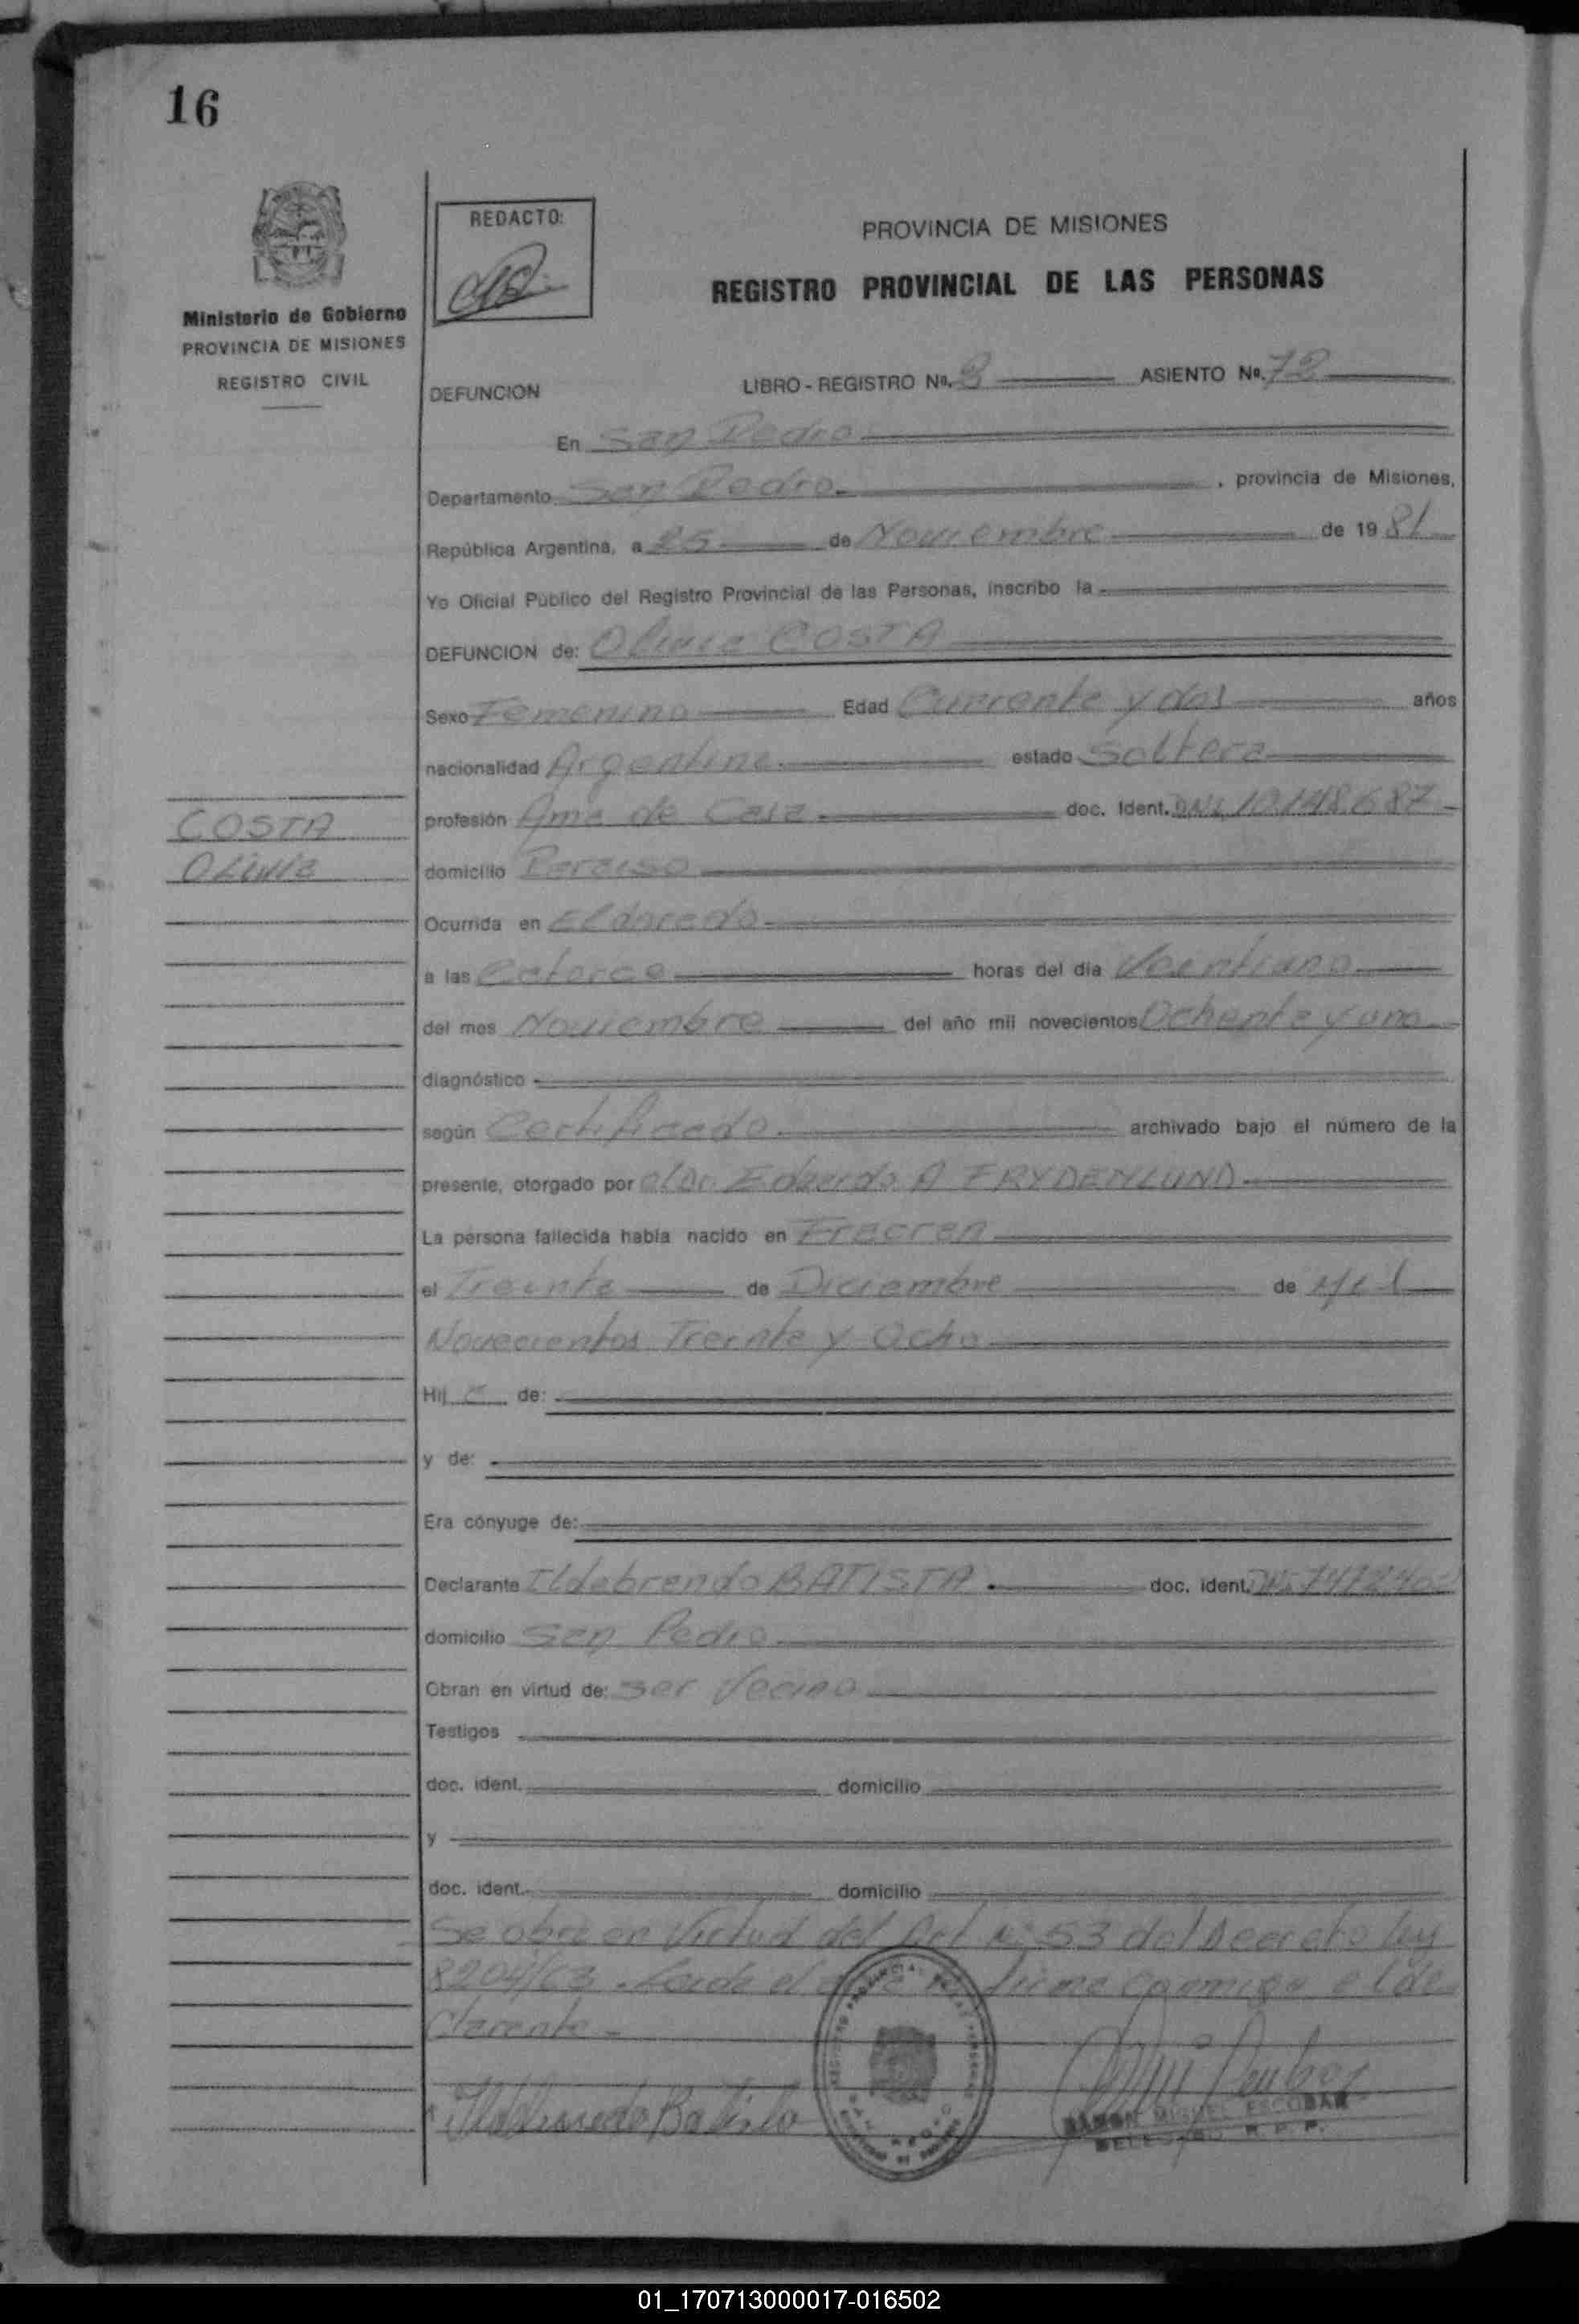 16
REDACTO:
PROVINCIA DE MISIONES
REGISTRO PROVINCIAL DE LAS PERSONAS
Ministerio de Gobierno
PROVINCIA DE MISIONES
REGISTRO CIVIL
DEFUNCION LIBRO - REGISTRO No. 3 ASIENTO No. 72
En San Pedro
Departamento San Pedro , provincia de Misiones,
República Argentina, a 25 de Noviembre de 19 81
Yo Oficial Público del Registro Provincial de las Personas, inscribo la
DEFUNCION de: Olivia COSTA
Sexo Femenino Edad Cuarenta y dos años
nacionalidad Argentina estado Soltera
COSTA
Olivia
profesión Ama de Casa doc. Ident. DNI, 10.148.687
domicilio Paraiso
Ocurrida en Eldorado
a las Catorce horas del dia Veintiuno
del mes Noviembre del año mil novecientos Ochenta y uno
diagnóstico
según Certificado archivado bajo el número de la
presente, otorgado por el Dr. Eduardo A FRYDENLUND
La persona fallecida habla nacido en Fracran
el Treinta de Diciembre de Mil
Novecientos Treinta y Ocho
Hij a de:
y de:
Era cónyuge de:
Declarante Ildebrando BATISTA doc. ident.
domicilio San Pedro
Obran en virtud de: ser Vecino
Testigos
doc. ident. domicilio
y
doc. ident. domicilio
Se obra en Virtud del Art Nº 53 del Decreto ley
8204/63. Leida el acta firma conmigo el de
clarante
Ildebrando Batista
RAMON MIGUEL ESCOBAR
DELEGADO R. P. P.
01_170713000017-016502